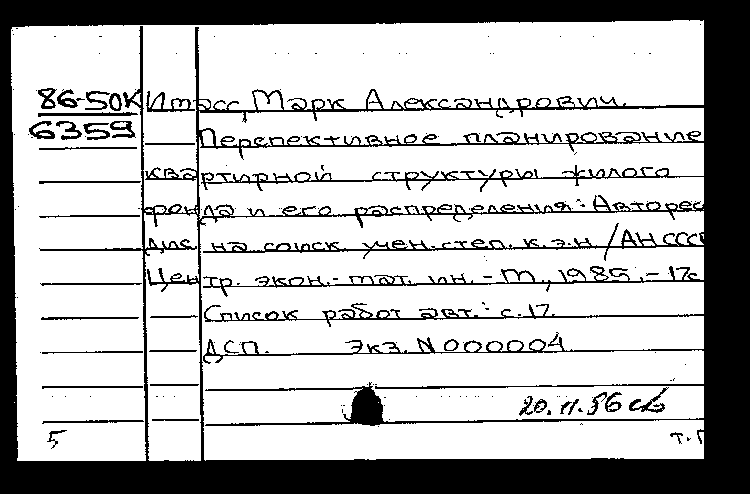 86-50К Итасс, Марк Александрович.
6359 Перспективное планирование
квартирной структуры жилого
фонда и его распределения: Авторес
дис. на соиск. учен. степ. к.э.н. / АН СССР
Центр. экон.-мат. ин. - М., 1985. - 17с
Список работ авт.: с. 17.
ДСП. Экз. N 000004
20.11.86
5 т. Г